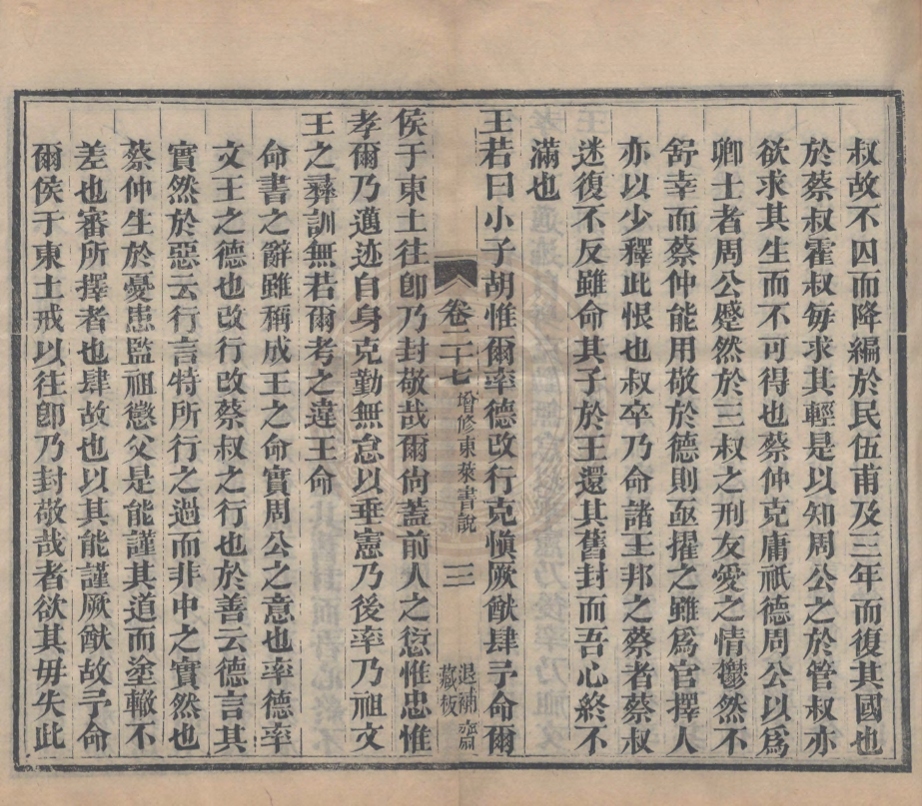 叔故不囚而降編於民伍甫及三年而復其國也
於蔡叔霍叔每求其輕是以知周公之於管叔亦
欲求其生而不可得也蔡仲克庸祗德周公以爲
卿士者周公蹙然於三叔之刑友愛之情鬱然不
舒幸而蔡仲能用敬於德則亟擢之雖爲官擇人
亦以少釋此恨也叔卒乃命諸王邦之蔡者蔡叔
迷復不反雖命其子於王還其舊封而吾心終不
滿也
王若曰小子胡惟爾率德改行克愼厥猷肆予命爾
卷二十七 增修東萊書說 三 退補齋藏板
侯于東土往卽乃封敬哉爾尙蓋前人之愆惟忠惟
孝爾乃邁迹自身克勤無怠以垂憲乃後率乃祖文
王之彝訓無若爾考之違王命
命書之辭雖稱成王之命實周公之意也率德率
文王之德也改行改蔡叔之行也於善云德言其
實然於惡云行言特所行之過而非中之實然也
蔡仲生於憂患監祖懲父是能謹其道而塗轍不
差也審所擇者也肆故也以其能謹厥猷故予命
爾侯于東土戒以往卽乃封敬哉者欲其毋失此